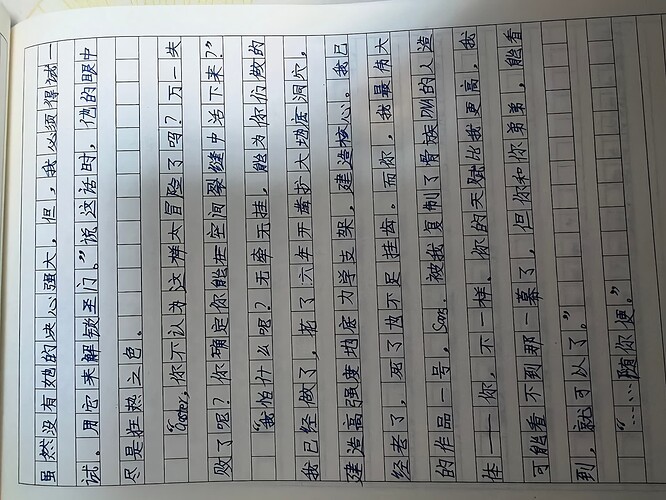 虽然没有她的决心强大，但，我必须得试一
试。用它来解锁圣门。”说这话时，俩的眼中
尽是狂热之色。
“Gaster，你不认为这样太冒险了吗？万一失
败了呢？你确定你能在空间裂缝中活下来？”
“我怕什么呢？无牵无挂，能为你们做的
我已经做了，花了六年开凿扩大地底洞穴，
建造高强度地底力学支架，建造核心。我已
经老了，死了也不足挂齿。而你，我最伟大
的作品一号，Sans. 被我复制了骨族DNA的人造
体——你，不一样。你的天赋比我更高，我
可能看不到那一幕了，但你和你弟弟，能看
到，就可以了。”
“……随你便。”